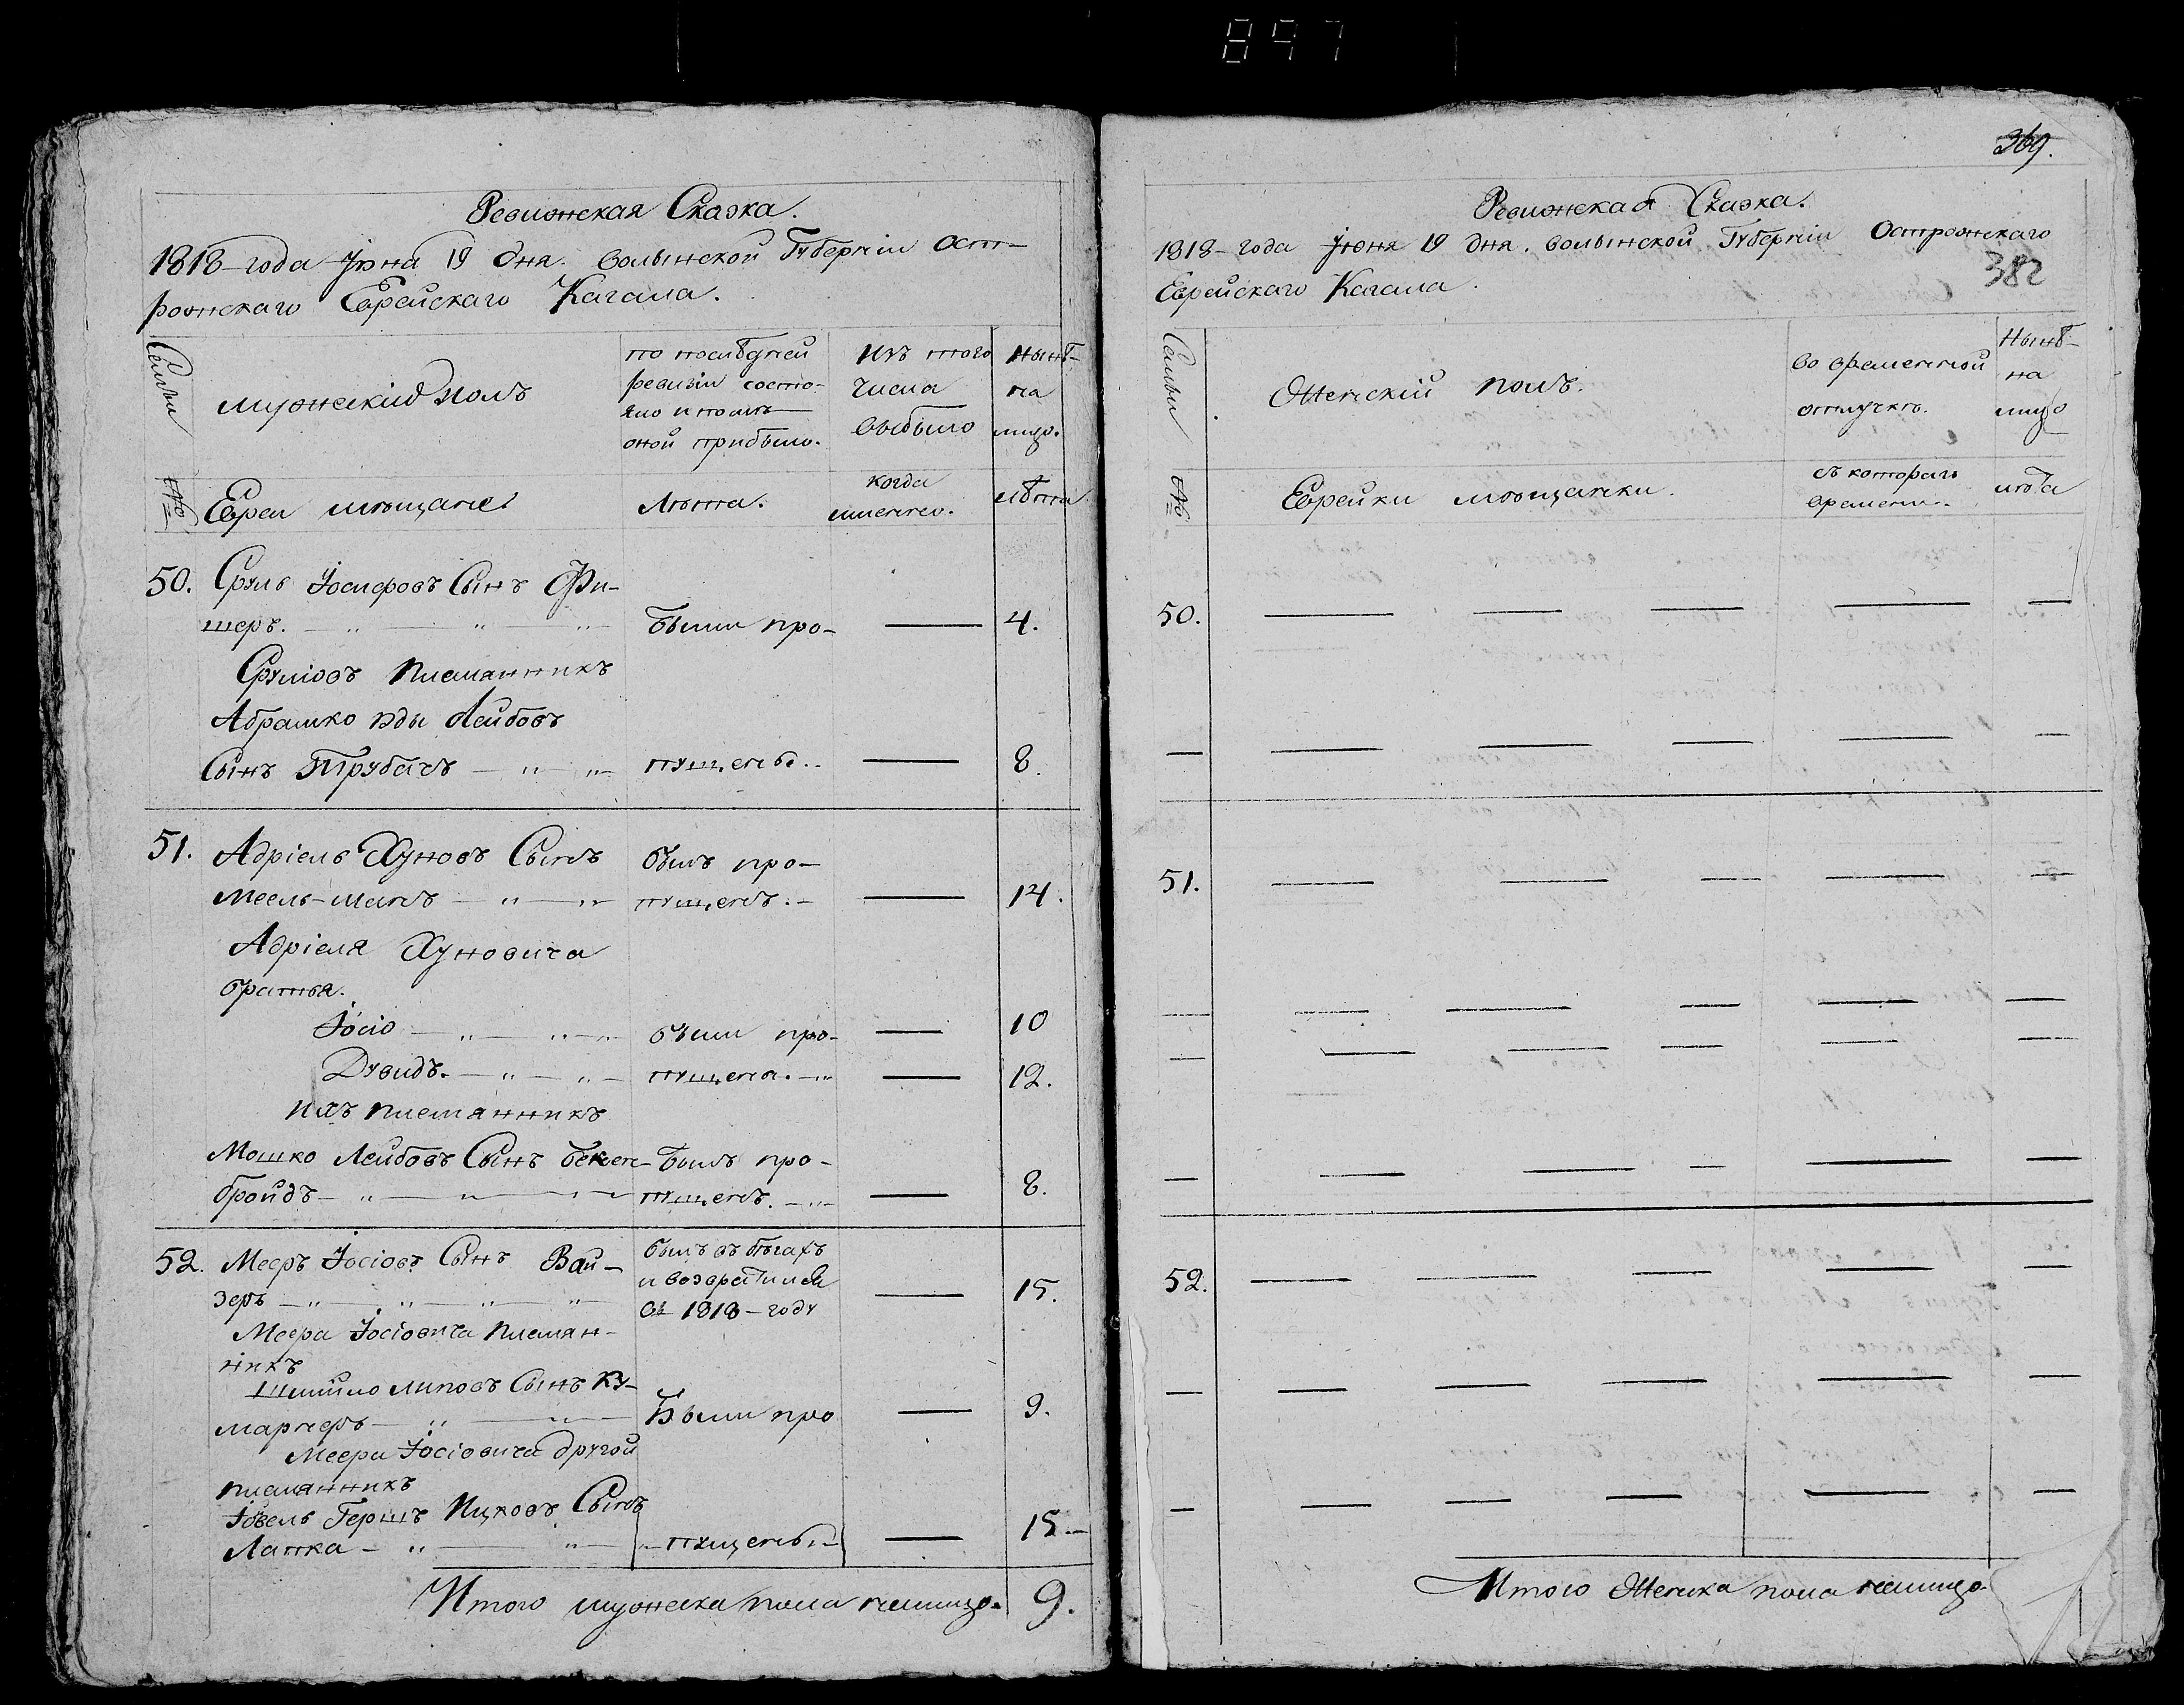 897
Ревижская Сказка.
1818-года Іюна 19 дня. Волынской Губерніи Ост-
рожскаго Еврейскаго Кагала.
Семьи
мужескій полъ
по послѣдней
ревизіи состо-
яло и послѣ
оной прибыло.
изъ того
числа
выбыло
Нынѣ-
на
лицо.
№
Евреи мѣщане
Лѣта.
когда
именно.
лѣта
50. Сруль Іосифовъ Сынъ Фи-
шеръ. были про- 4.
Сруліовъ племянникъ
Абрамко Лейбовъ
Сынъ Трубачъ пущены. 8.
51. Адріель Хуновъ Сынъ былъ про-
Меель-манъ пущенъ. 14.
Адріеля Хуновича
братья.
Іосіо были про- 10
Дувидъ. пущена. 12.
ихъ племянникъ
Мошко Лейбовъ Сынъ Бекен- былъ про-
бройдъ пущенъ. 8.
52. Мееръ Іосіовъ Сынъ Вай- былъ въ бѣгахъ
зеръ и возвратился 15.
въ 1818-году
Меера Іосіовича племян-
никъ
Шмило Липовъ Сынъ Ку-
марнеръ Были про 9.
Меера Іосіовича другой
племянникъ
Іовель Гершъ Ицковъ Сынъ
Лапка пущены. 15
Итого мужеска пола налицо. 9.
369.
Ревижская Сказка.
1818-года Іюня 19 дня. Волынской Губерніи Острожскаго
382
Еврейскаго Кагала.
Семьи
Женскій полъ.
во временной
отлучкѣ.
Нынѣ-
на
лицо
№
Еврейки мѣщанки.
съ котораго
времени.
лѣта
50.
51.
52.
Итого Женска пола налицо